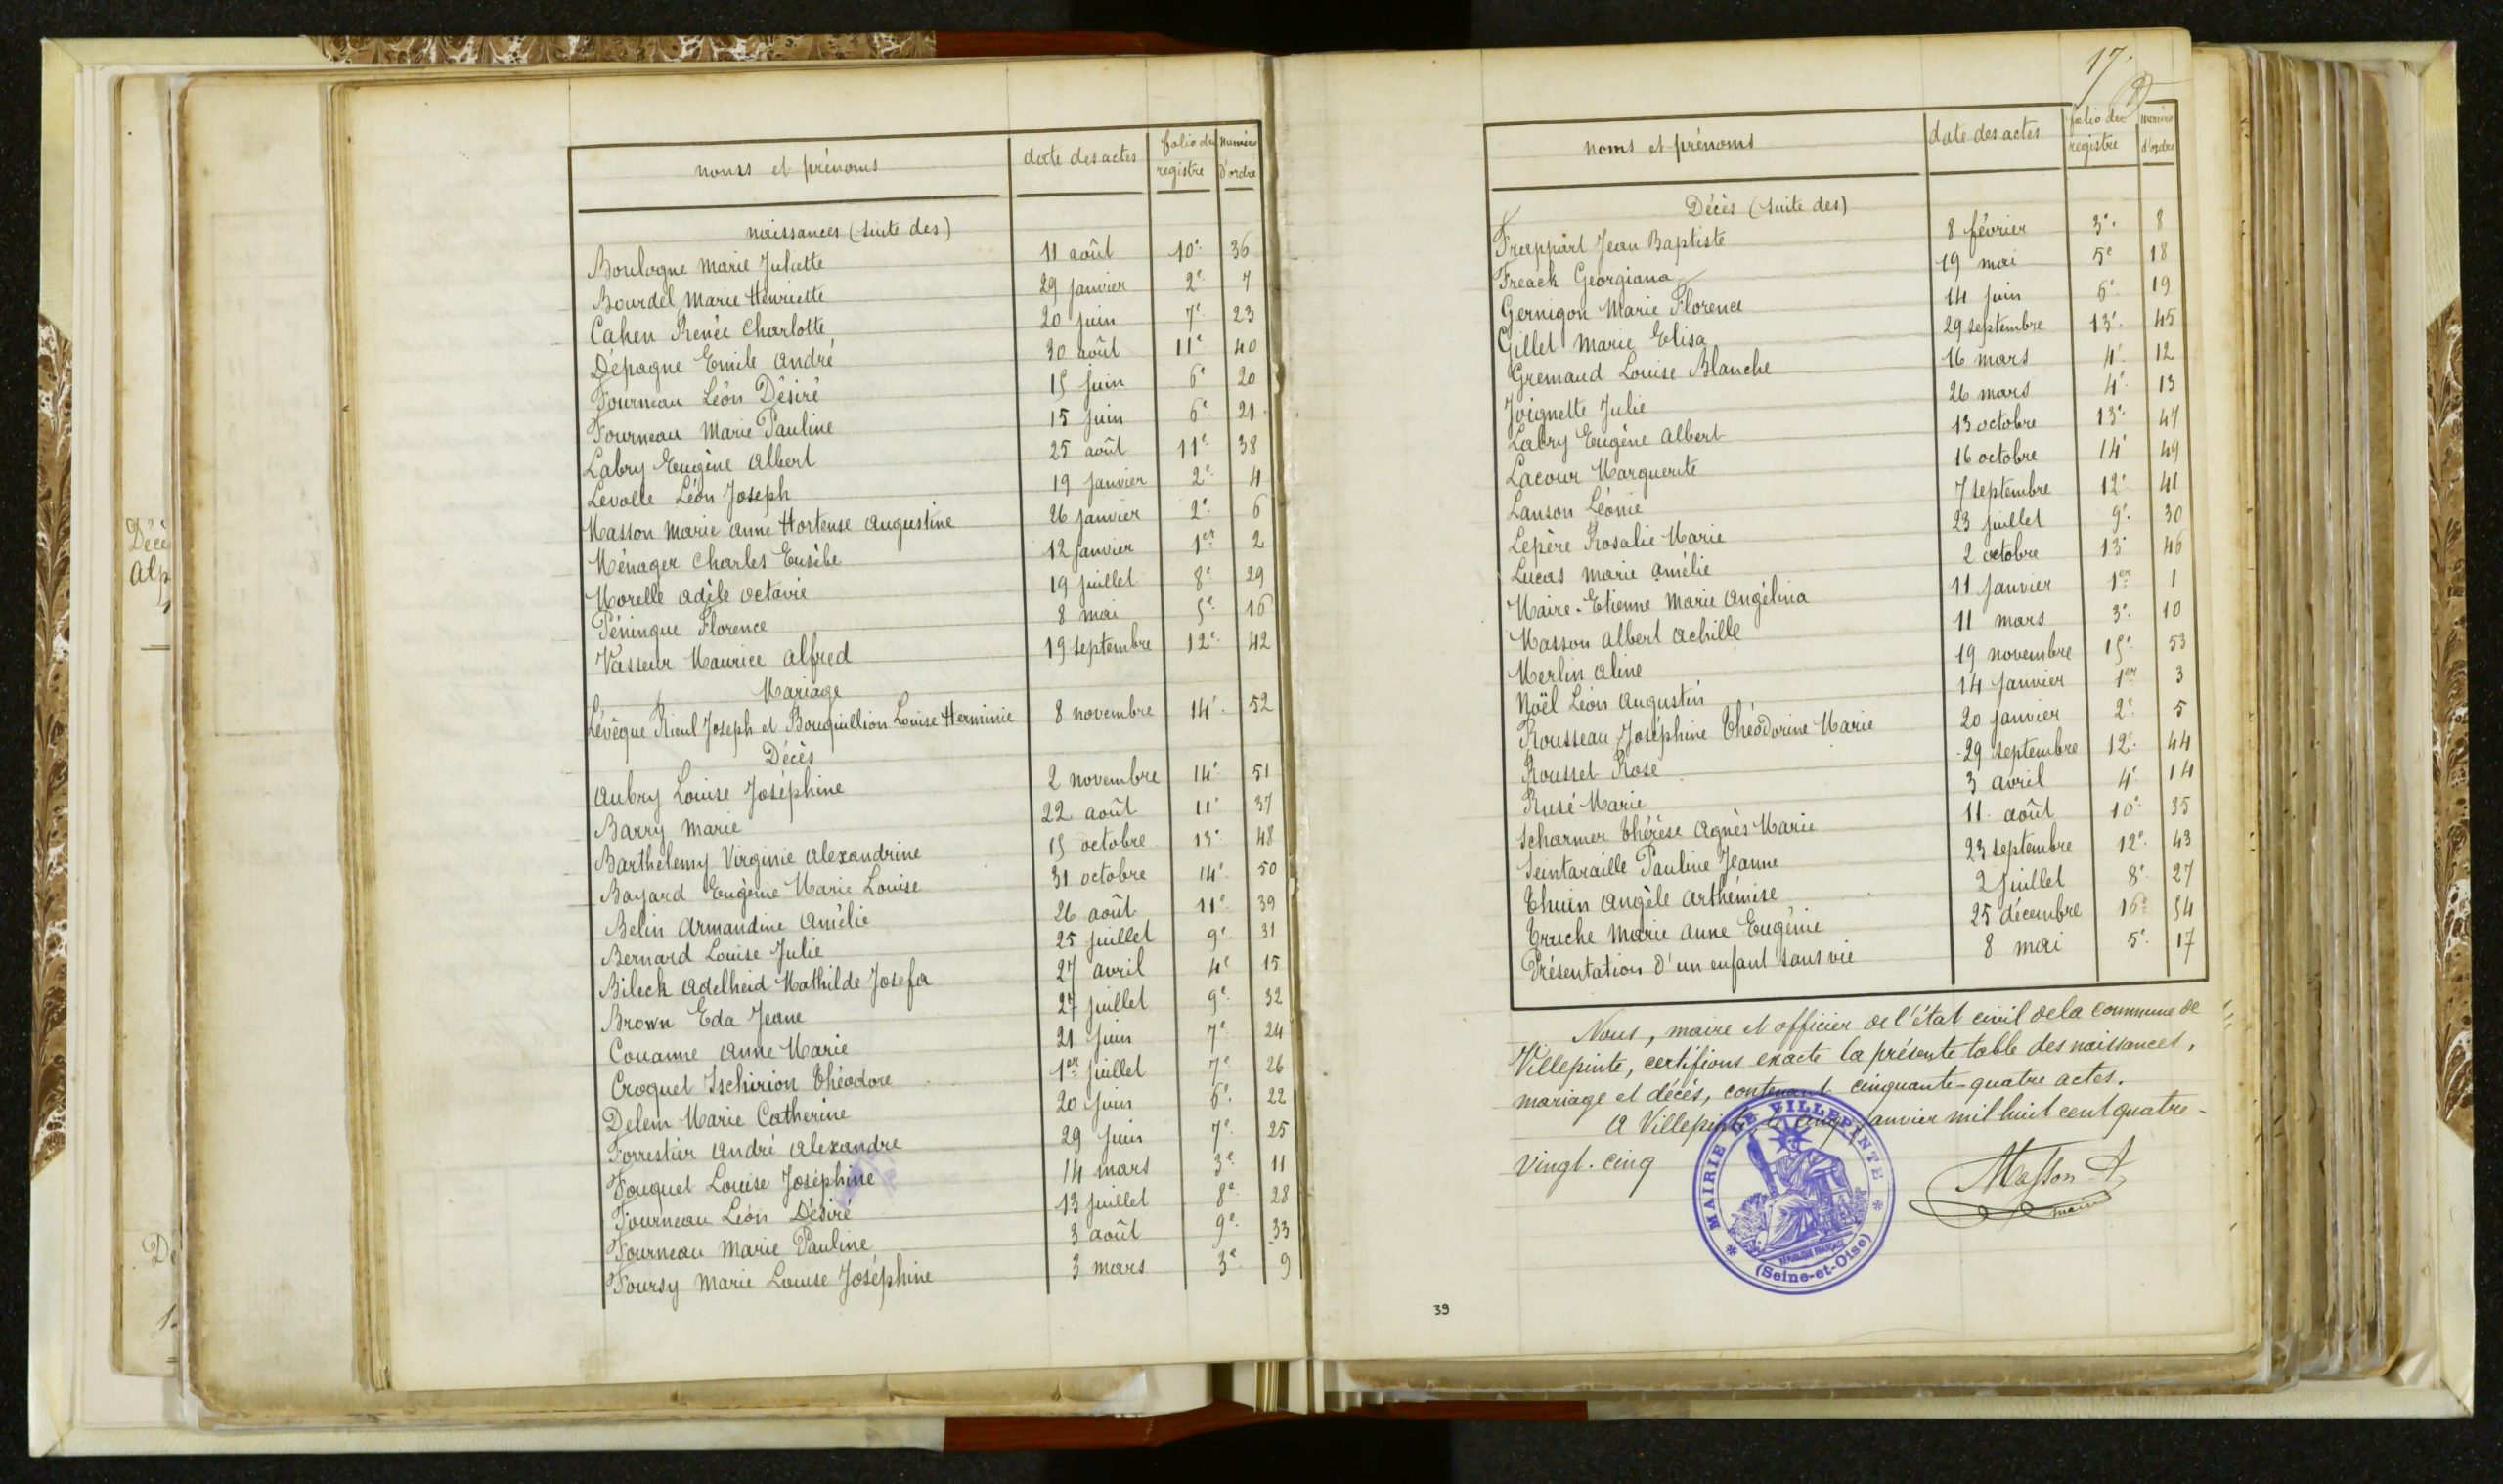 Décè
Alp
1
Dé
1.
noms et prénoms date des actes folio du registre numéro d'ordre
naissances (suite des)
Boulogne Marie Juliette 11 août 10e. 36
Bourdel Marie Henriette 29 janvier 2e. 7
Cahen Renée Charlotte 20 juin 7e. 23
Dépagne Emile André 30 août 11e 40
Fourneau Léon Désiré 15 juin 6e 20
Fourneau Marie Pauline 15 juin 6e. 21
Labry Eugène Albert 25 août 11e. 38
Levolle Léon Joseph 19 janvier 2e. 4
Masson Marie Anne Hortense Augustine 26 janvier 2e. 6
Ménager Charles Eusèbe 12 janvier 1er 2
Morelle Adèle Octavie 19 juillet 8e 29
Péningue Florence 8 mai 5e. 16
Vasseur Maurice Alfred 19 septembre 12e. 42
Mariage
Lévêque Rieul Joseph et Bouquillion Louise Herminie 8 novembre 14e. 52
Décès
Aubry Louise Joséphine 2 novembre 14e. 51
Barry Marie 22 août 11e 37
Barthelemy Virginie Alexandrine 15 octobre 13e 48
Bayard Eugènie Marie Louise 31 octobre 14e. 50
Belin Armandine Amélie 26 août 11e. 39
Bernard Louise Julie 25 juillet 9e. 31
Bileck Adelheid Mathilde Josefa 27 avril 4e 15
Brown Eda Jeane 27 juillet 9e. 32
Couanne Anne Marie 21 juin 7e. 24
Croquet Ischirion Théodore 1er juillet 7e 26
Delem Marie Catherine 20 juin 6e. 22
Forrestier André Alexandre 29 juin 7e. 25
Fouquet Louise Joséphine 14 mars 3e. 11
Fourneau Léon Désiré 13 juillet 8e. 28
Fourneau Marie Pauline 3 août 9e. 33
Foursy Marie Louise Joséphine 3 mars 3e. 9
17.
noms et prénoms date des actes folio du registre numéro d'ordre
Décès (suite des)
Frappart Jean Baptiste 8 février 3e. 8
Freack Georgiana 19 mai 5e 18
Gernigon Marie Florence 14 juin 6e. 19
Gillet Marie Elisa 29 septembre 13e. 45
Gremaud Louise Blanche 16 mars 4e. 12
Joignette Julie 26 mars 4e. 13
Labry Eugène Albert 13 octobre 13e. 47
Lacour Marguerite 16 octobre 14e 49
Lanson Léonie 7 septembre 12e. 41
Lepère Rosalie Marie 23 juillet 9e. 30
Lucas Marie Amélie 2 octobre 13e 46
Maire-Etienne Marie Angélina 11 janvier 1er 1
Masson Albert Achille 11 mars 3e. 10
Merlin Aline 19 novembre 15e. 53
Noël Léon Augustin 14 janvier 1er 3
Rousseau Joséphine Théodorine Marie 20 janvier 2e. 5
Rousset Rose 29 septembre 12e. 44
Rusé Marie 3 avril 4e 14
Scharmer Thérèse Agnès Marie 11 août 10e. 35
Seintaraille Pauline Jeanne 23 septembre 12e. 43
Thuin Angèle Arthémise 2 juillet 8e. 27
Truche Marie Anne Eugénie 25 décembre 16e. 54
Présentation d'un enfant sans vie 8 mai 5e. 17
Nous, maire et officier de l'état civil de la commune de
Villepinte, certifions exacte la présente table des naissances,
mariage et décès, contenant cinquante-quatre actes.
A Villepinte, le cinq janvier mil huit cent quatre-
vingt-cinq
Masson A
maire
MAIRIE DE VILLEPINTE
RÉPUBLIQUE FRANÇAISE
(Seine-et-Oise)
39